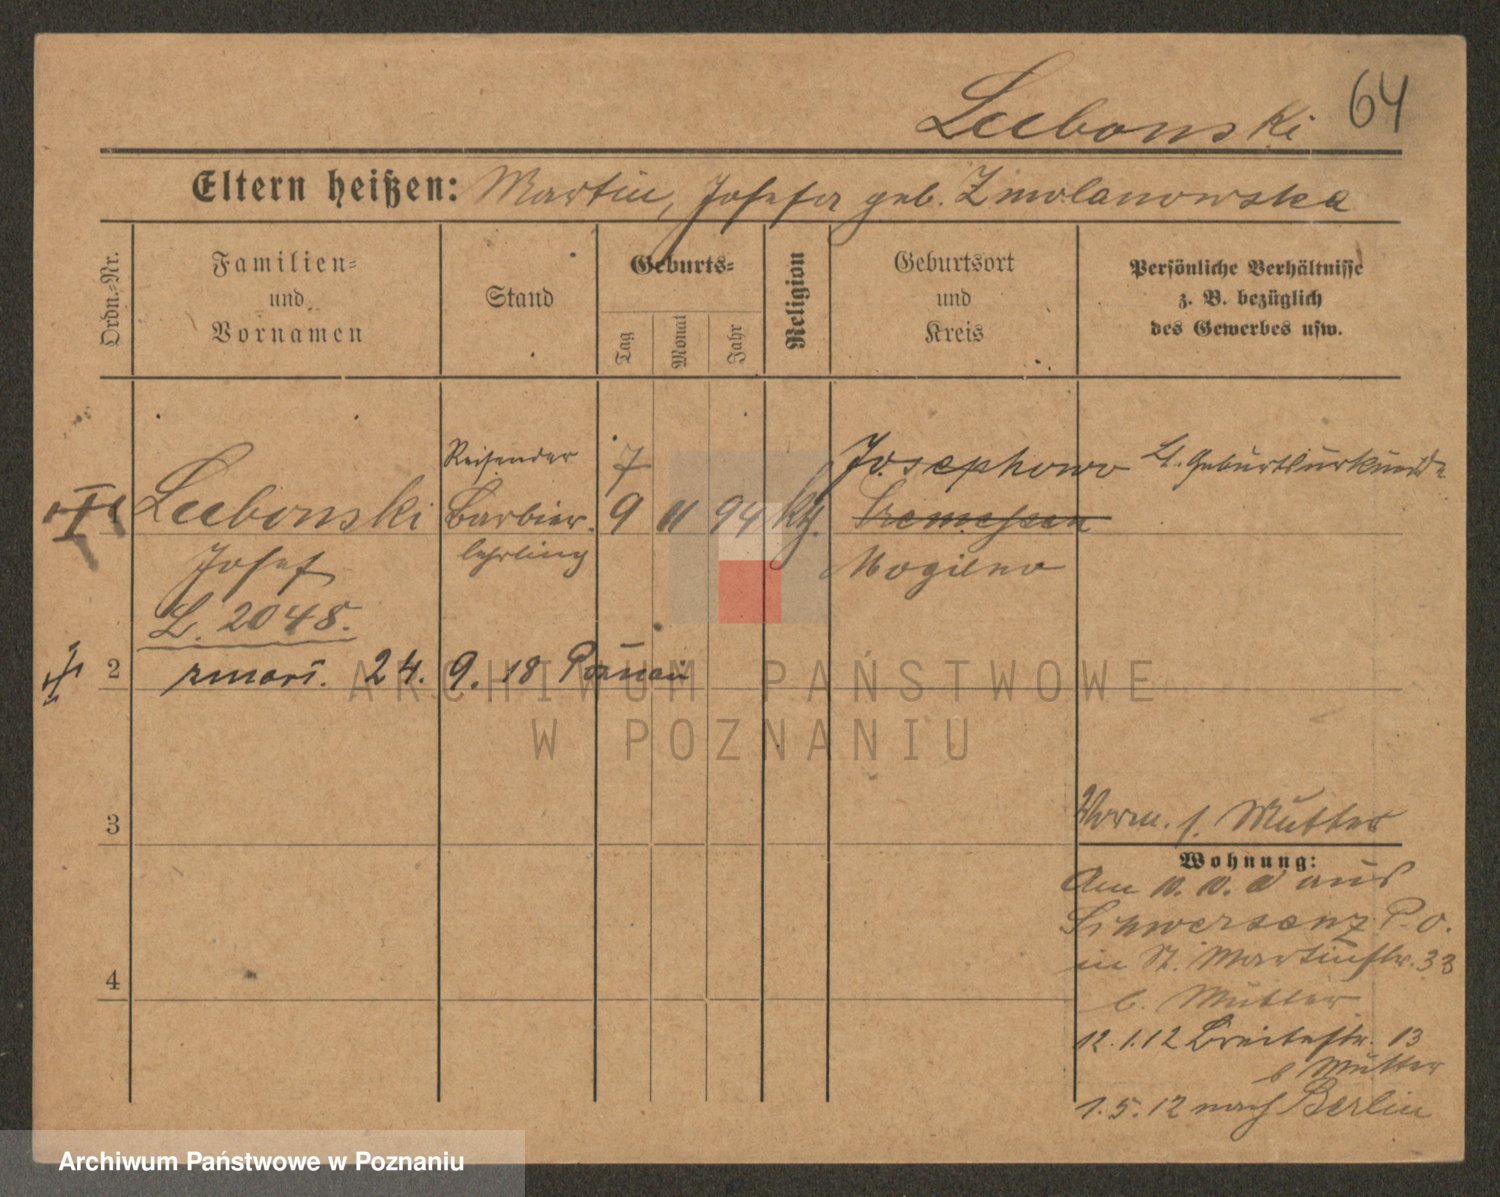 Leebonski 64
Eltern heißen: Martin, Josefa geb. Zmolanowska
Ordn.-Nr.
Familien-
und
Vornamen
Stand
Geburts-
Tag
Monat
Jahr
Religion
Geburtsort
und
Kreis
Persönliche Verhältnisse
z. B. bezüglich
des Gewerbes usw.
Reisender 7 Josephowo Lt. Geburtsurkunde
I Leebonski Barbier- 9 11 94 kth. Tremessen
Josef lehrling Mogilno
L. 2048.
2 zmarł. 24. 9. 18 Poznań
3
Vorm. s. Mutter
Wohnung:
Am aus
Schwersenz P. O.
in St. Martinstr. 33
b. Mutter
12.1.12 Breitestr. 13
b Mutter
1.5.12 nach Berlin
4
ARCHIWUM PAŃSTWOWE
W POZNANIU
Archiwum Państwowe w Poznaniu